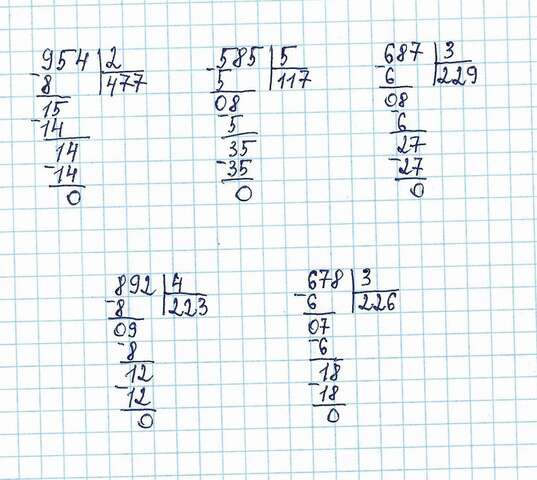 954 | 2
-8 | 477
15
-14
14
-14
0
-585 | 5
5 | 117
08
-5
35
-35
0
-687 | 3
6 | 229
08
-6
27
-27
0
892 | 4
-8 | 223
09
-8
12
-12
0
-678 | 3
6 | 226
07
-6
18
-18
0